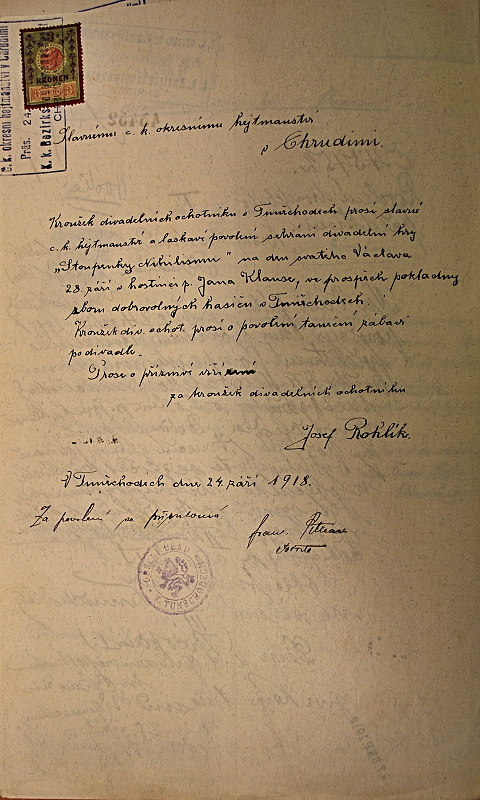 c. k. okresní hejtmanství v Chrudimi
Präs. 24
K. k. Bezirks
KRONEN
Slavnému c. k. okresnímu hejtmanství
v Chrudimi.
Kroužek divadelních ochotníku v Tuněchodech prosí slavné
c. k. hejtmanství o laskavé povolení sehrání divadelní hry
„Stoupenky Nihilismu" na den svatého Václava
28. září v hostinci p. Jana Klause, ve prospěch pokladny
sboru dobrovolných hasičů v Tuněchodech.
Kroužek div. ochot. prosí o povolení taneční zábavi
po divadle.
Prose o příznivé
za kroužek divadelních ochotníku
Josef Rohlík.
V Tuněchodech dne 24. září 1918.
Za povolení se přimlouvá
Franc.
OBECNÍ ÚŘAD
V TUNĚCHODECH